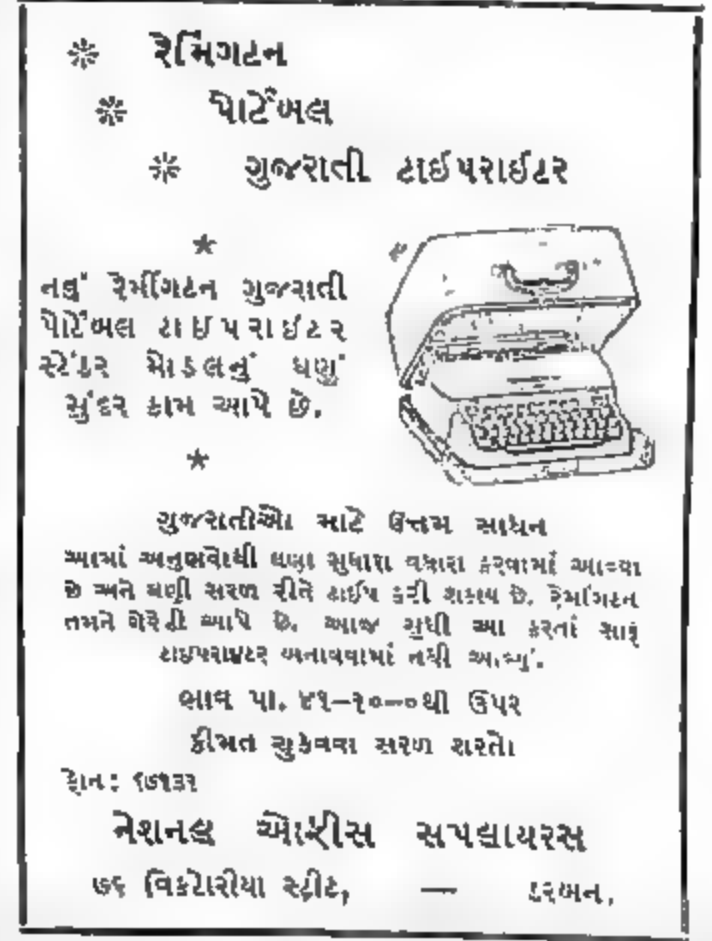 રેમિંગટન
પોર્ટેબલ
ગુજરાતી ટાઈપરાઈટર
નવું રેમીંગટન ગુજરાતી
પોર્ટેબલ ટાઈપરાઈટર
સ્ટેંડર મોડલનું ઘણું
સુંદર કામ આપે છે.
ગુજરાતીઓ માટે ઉત્તમ સાધન
આમાં અનુભવોથી ઘણા સુધારા વધારા કરવામાં આવ્યા
છે અને ઘણી સરળ રીતે ટાઈપ કરી શકાય છે. રેમીંગટન
તમને ગેરેંટી આપે છે. આજ સુધી આ કરતાં સારૂં
ટાઇપરાઇટર બનાવવામાં નથી આવ્યું.
ભાવ પા. ૪૧–૧૦–૦થી ઉપર
કીમત ચુકવવા સરળ શરતો
ફોન: ૬૭૧૩૨
નેશનલ ઓફીસ સપલાયરસ
૭૬ વિકટોરીયા સ્ટ્રીટ, — ડરબન.